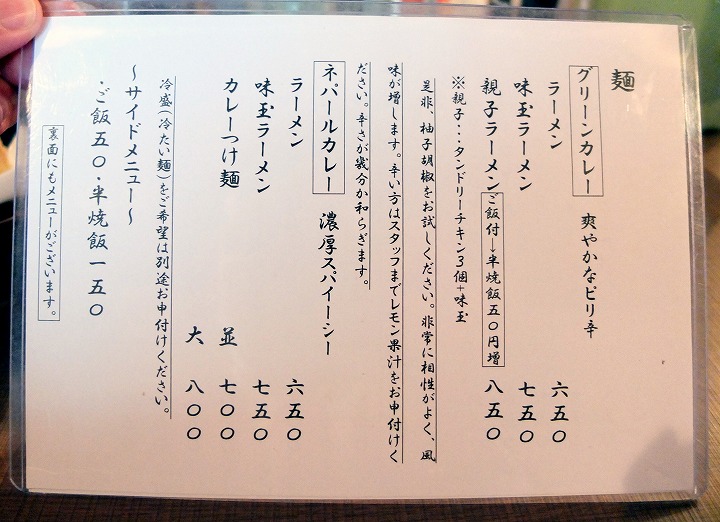 麺
グリーンカレー 爽やかなピリ辛
ラーメン 六五〇
味玉ラーメン 七五〇
親子ラーメン ご飯付→半焼飯五〇円増 八五〇
※親子・・・タンドリーチキン3個+味玉
是非、柚子胡椒をお試しください。非常に相性がよく、風
味が増します。辛い方はスタッフまでレモン果汁をお申付けく
ださい。辛さが幾分か和らぎます。
ネパールカレー 濃厚スパイーシー
ラーメン 六五〇
味玉ラーメン 七五〇
カレーつけ麺 並 七〇〇
大 八〇〇
冷盛(冷たい麺)をご希望は別途お申付けください。
〜サイドメニュー〜
・ご飯五〇・半焼飯一五〇
裏面にもメニューがございます。